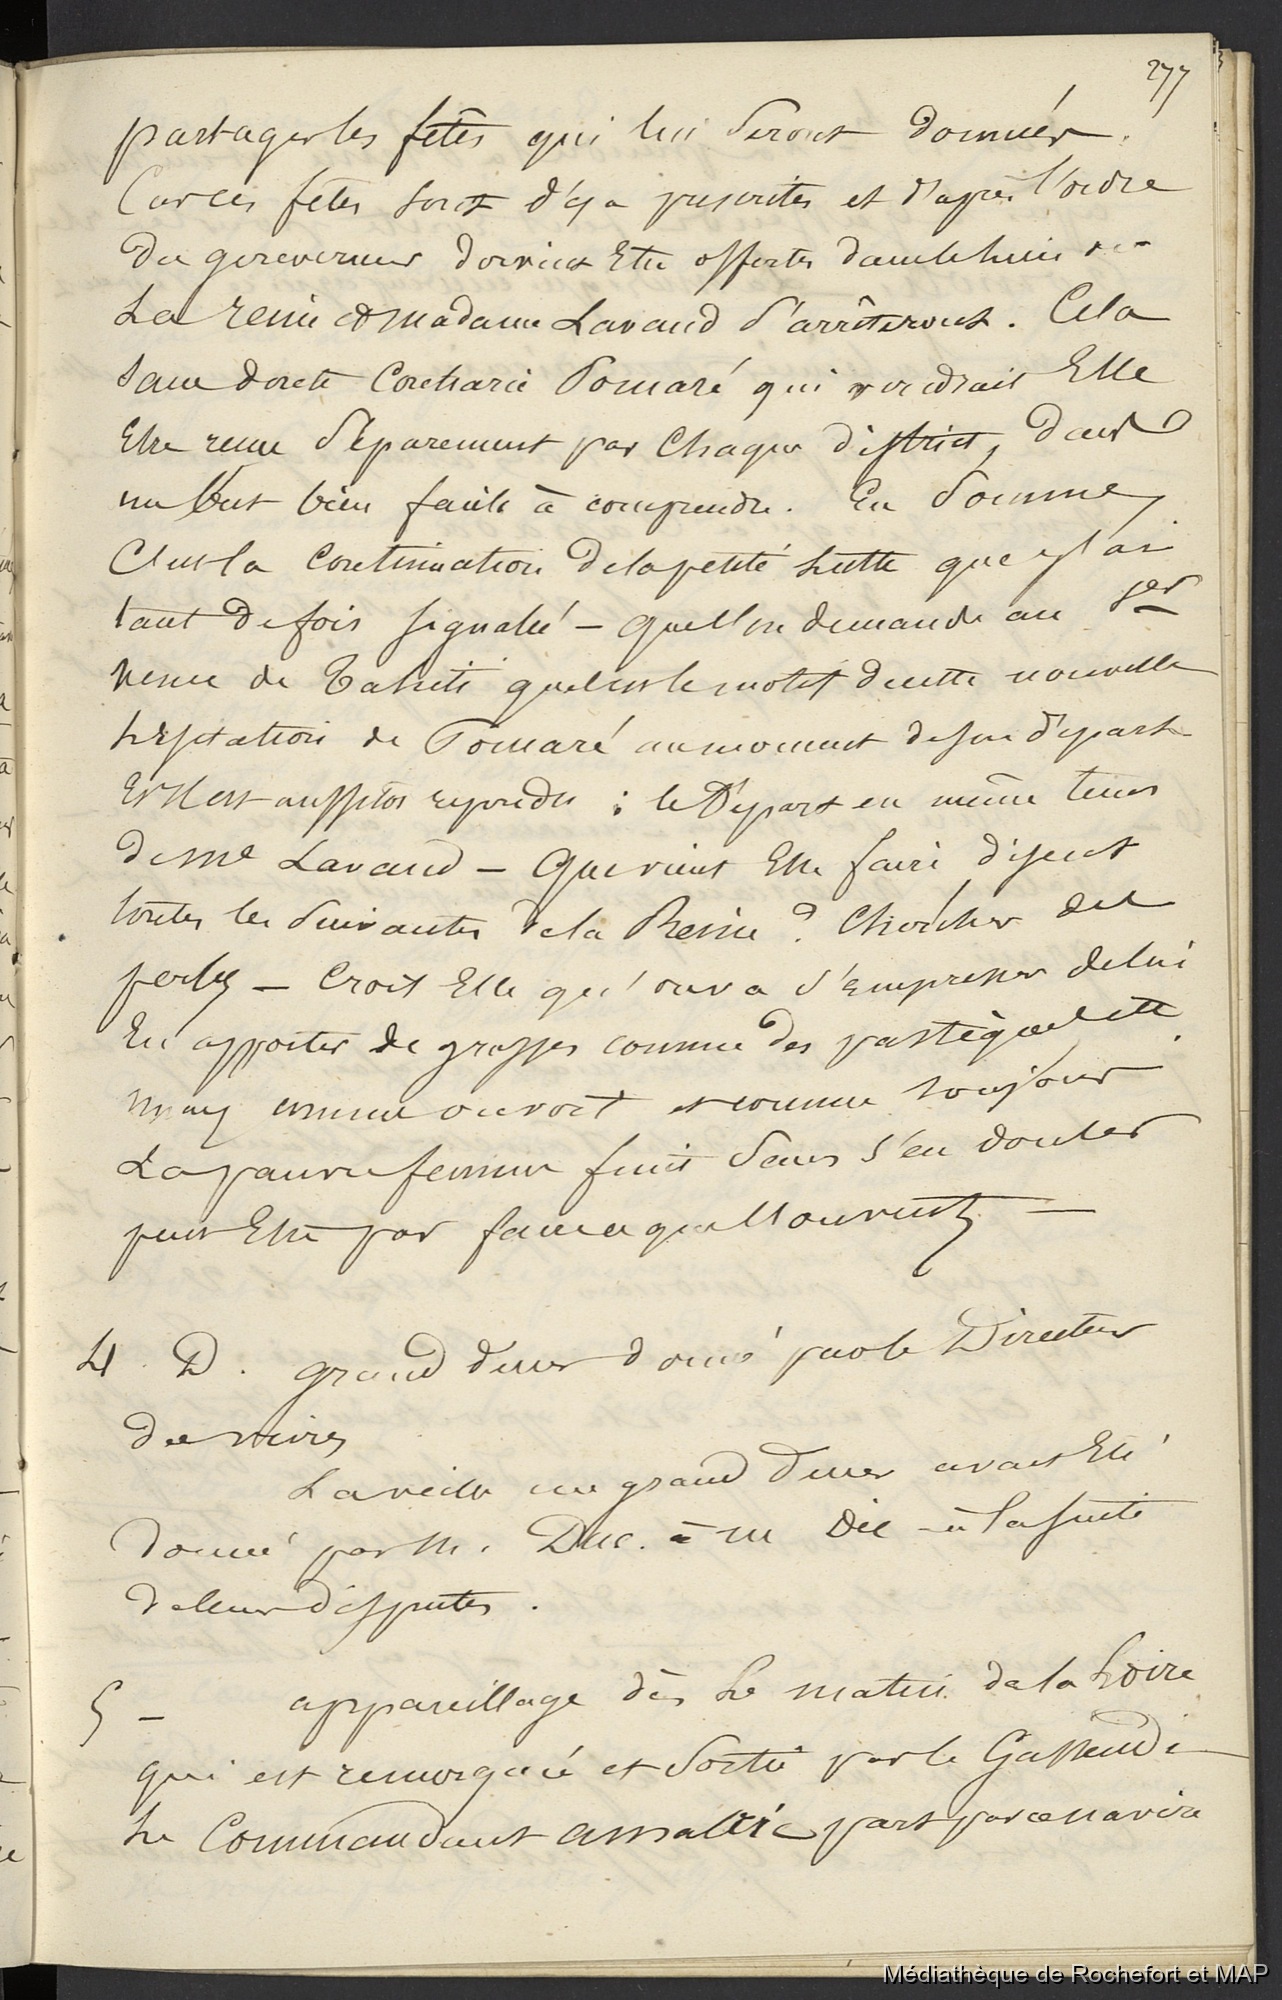 277
partager les fêtes qui lui seront données.
Car ces fêtes sont déja prescrites et d'après l'ordre
du gouverneur doivent Etre offertes dans le lieu ou
La reine et madame Lavaud s'arrêteront. Cela
sans doute Contrarie Pomaré qui voudrait Elle
Etre reçue séparement par Chaque district, dans
un but bien facile à comprendre. En somme,
C'est la Continuation de la petite lutte que j'ai
tant de fois signalée – Que l'on demande au 1er
venu de Tahiti quel est le motif de cette nouvelle
hésitation de Pomaré au moment de son départ
Et il est aussitot repondu : le Départ en même tems
de Me Lavaud – Que vient Elle faire disent
toutes les suivantes de la Reine ? Chercher des
perles – Croit Elle qu'on va s'empresser de lui
En apporter de grosses comme des pastèques
comme on voit et comme toujours
La pauvre femme finit sans s'en douter
peut Etre par
4. D. grand diner donné par le Directeur
des vivres
La veille un grand diner avait Eté
donné par M. Duc. à M Die – à la suite
de leurs disputes.
5 – appareillage dès le matin de la Loire
qui est remorquée et sortie par le Gassendi
Le Commandant part par ce navire
Médiathèque de Rochefort et MAP